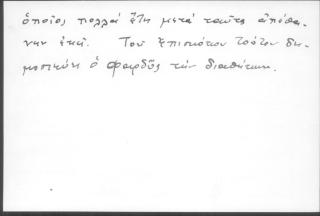 ὁποῖος πολλὰ ἔτη μετὰ ταῦτα ἀπέθα-
νεν ἐκεῖ. Τοῦ Ἐπισκόπου τούτου δη-
μοσιεύει ὁ φαρδῦς τὴν διαθήκην.